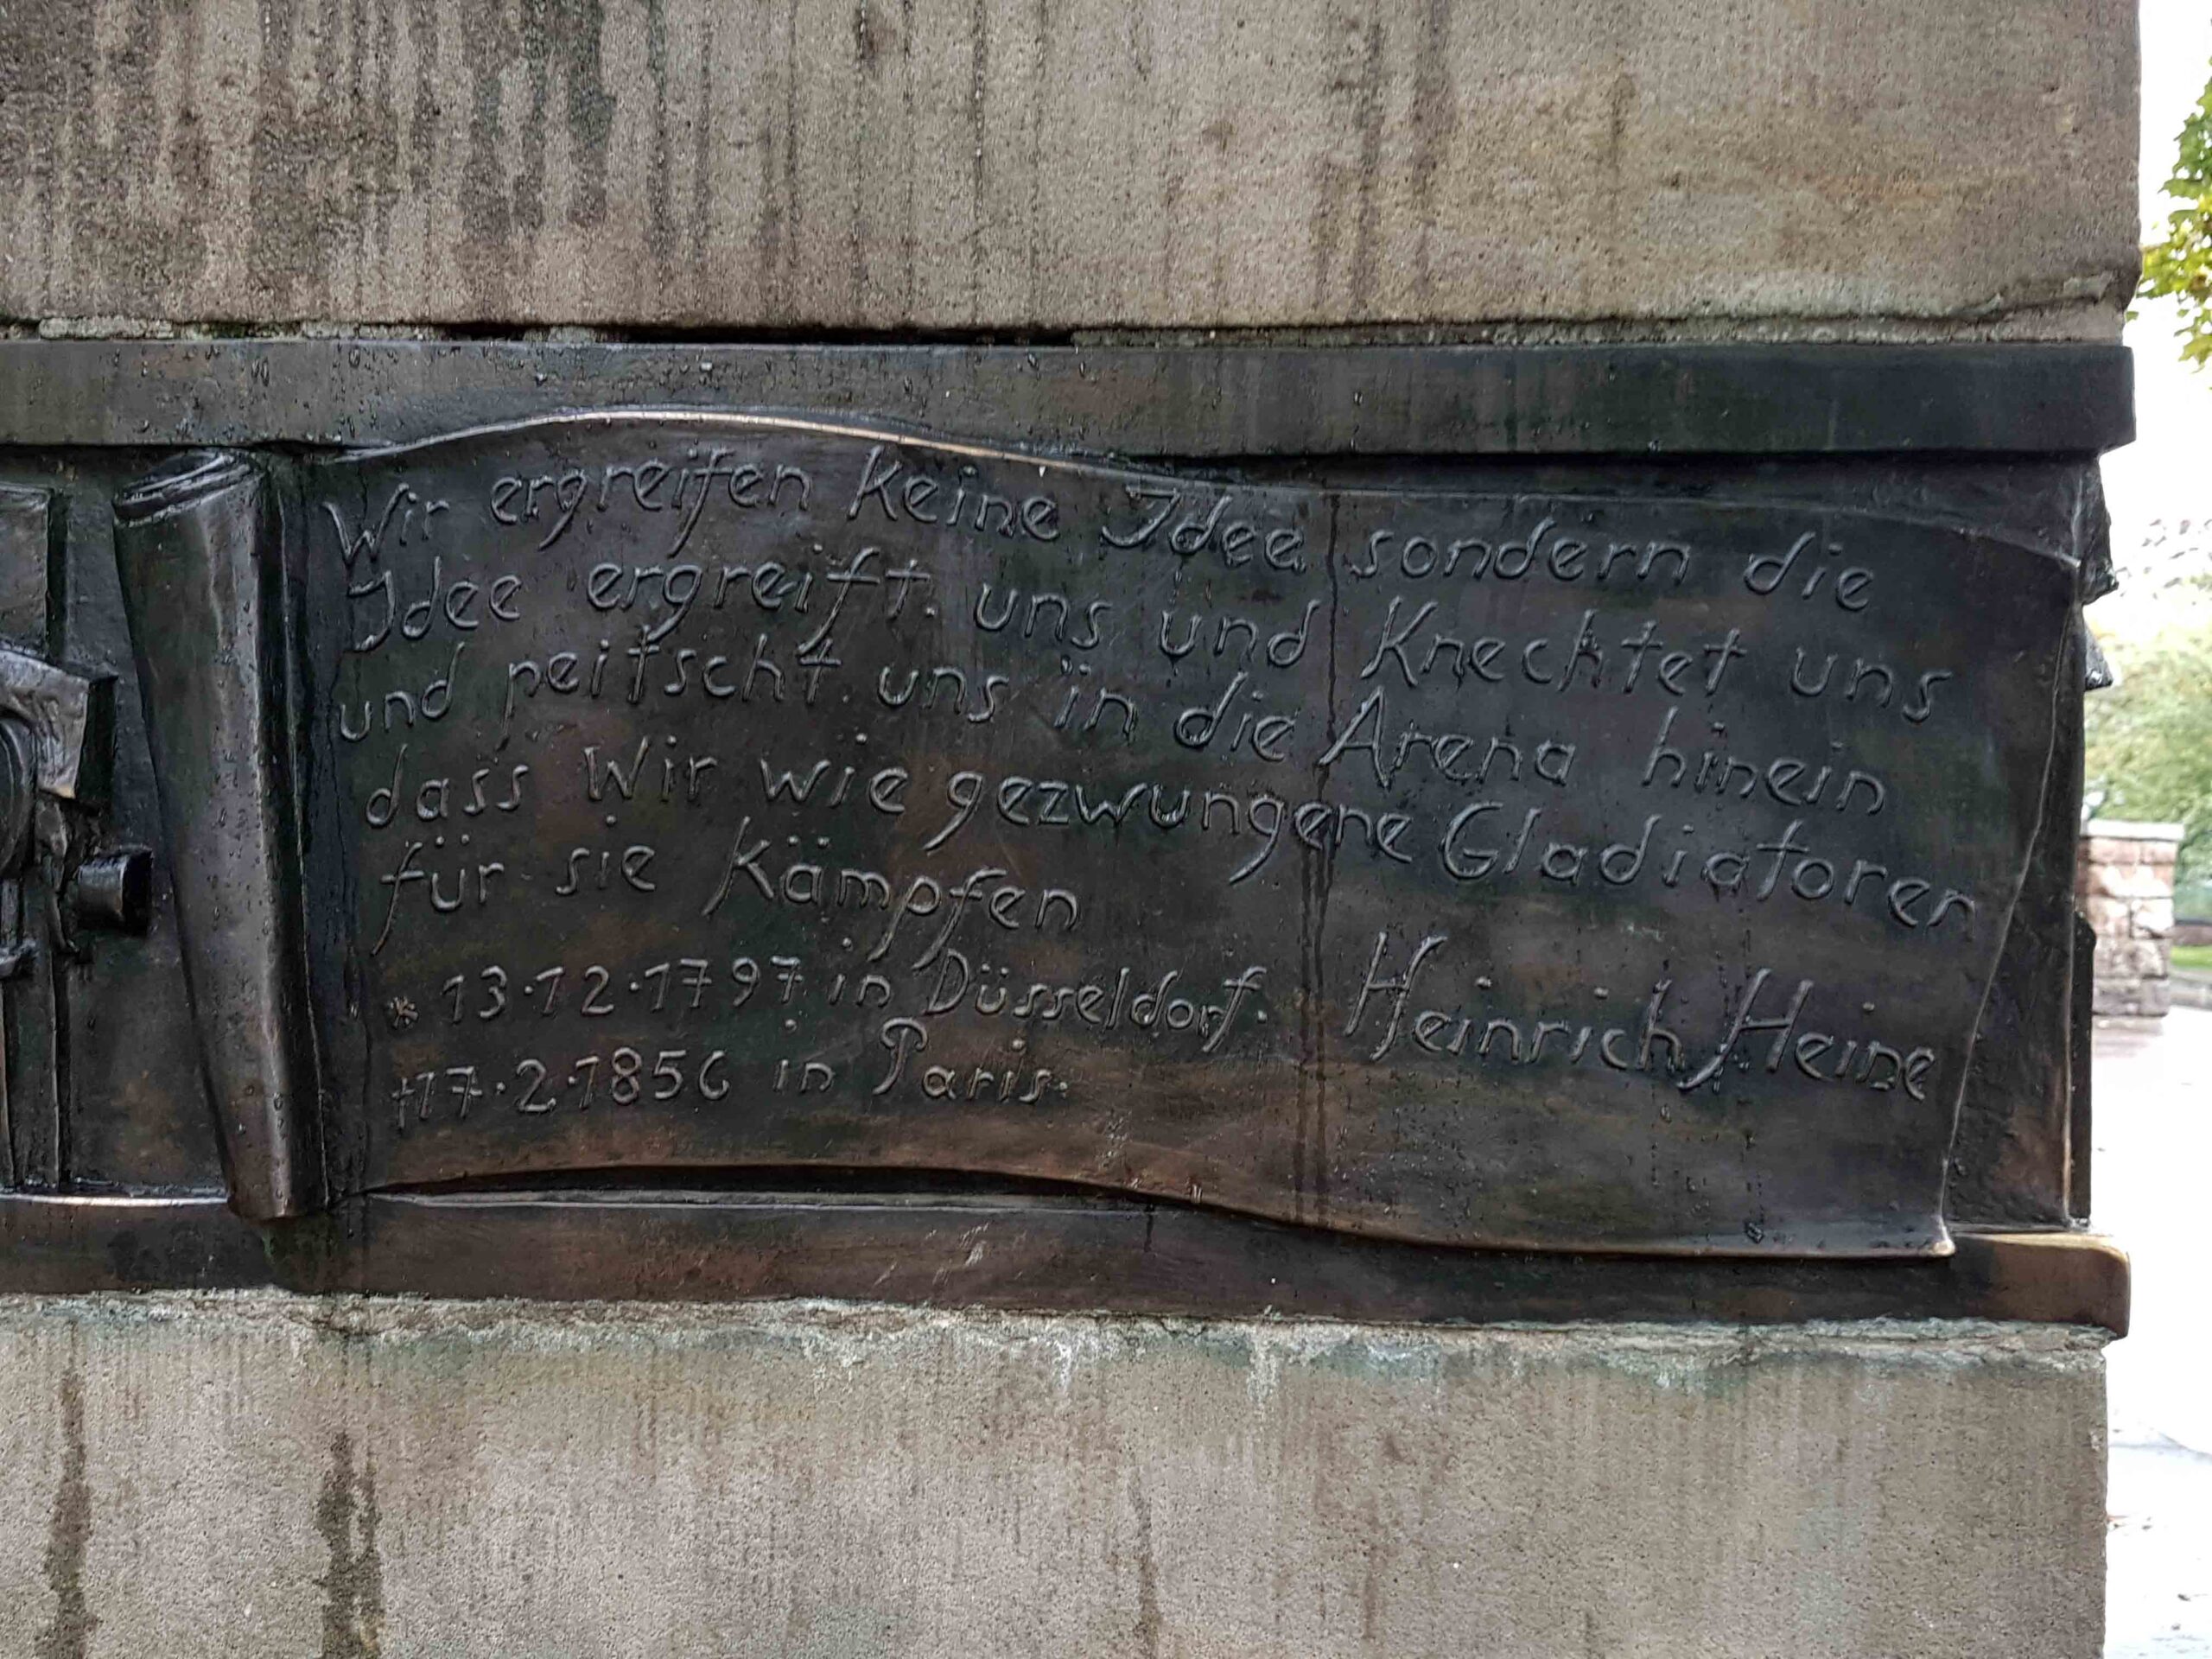 Wir ergreifen Keine Idee sondern die
Idee ergreift uns und Knechtet uns
und peitscht uns in die Arena hinein
dass Wir wie gezwungene Gladiatoren
für sie Kämpfen
* 13.12.1797 in Düsseldorf. Heinrich Heine
†17.2.1856 in Paris.